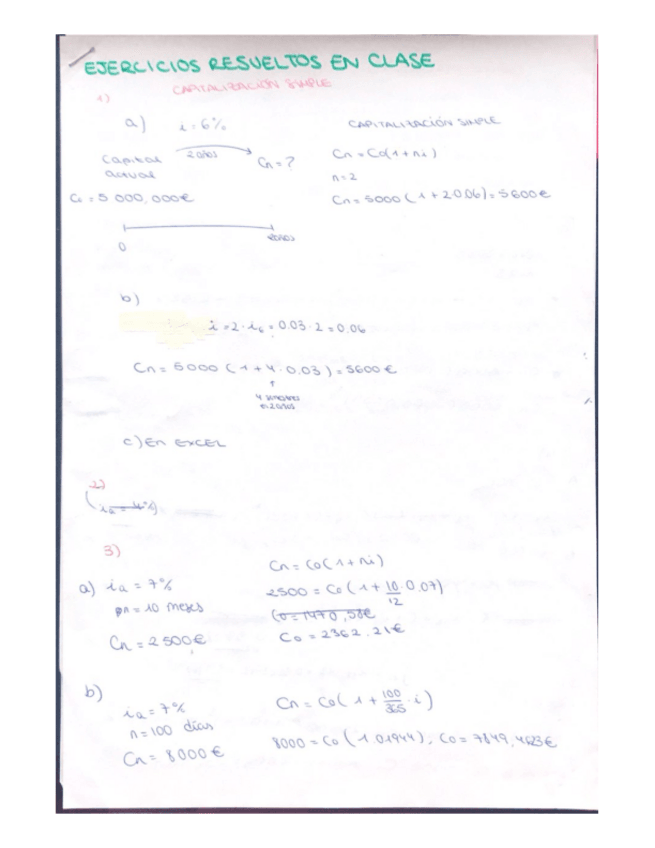 EJERCICIOS RESUELTOS EN CLASE
1) CAPITALIZACIÓN SIMPLE
a) i = 6% CAPITALIZACIÓN SIMPLE
Capital actual 2 años Cn = ? Cn = Co(1+ni)
n = 2
Co = 5 000,000€ Cn = 5000 (1 + 2·0.06) = 5600€
0 2 años
b)
i = 2 · is = 0.03 · 2 = 0.06
Cn = 5000 (1 + 4 · 0.03) = 5600€
↑
4 semestres
en 2 años
c) En EXCEL
2)
ia = 4%
3)
Cn = Co(1 + ni)
a) ia = 7% 2500 = Co (1 + 10/12 · 0.07)
n = 10 meses Co = 1470,58€
Cn = 2500€ Co = 2362.21€
b)
ia = 7% Cn = Co(1 + 100/365 · i)
n = 100 días
Cn = 8000€ 8000 = Co (1.01944); Co = 7849,4123€